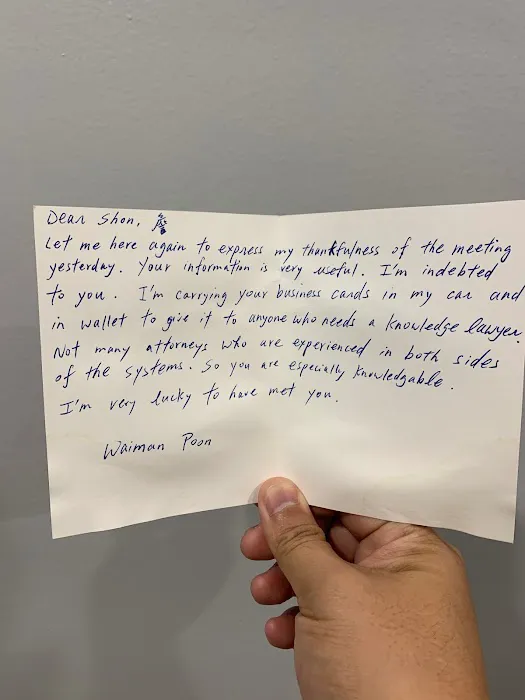 Dear Shon,
Let me here again to express my thankfulness of the meeting
yesterday. Your information is very useful. I'm indebted
to you. I'm carrying your business cards in my car and
in wallet to give it to anyone who needs a knowledge lawyer.
Not many attorneys who are experienced in both sides
of the systems. So you are especially knowledgable.
I'm very lucky to have met you.
Waiman Poon